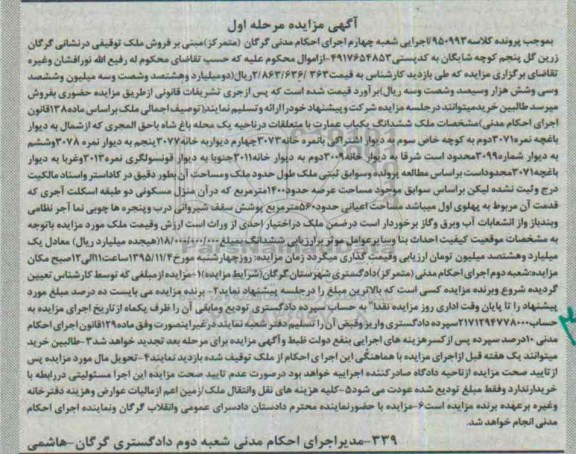 آگهی مزایده مرحله اول
بموجب پرونده کلاسه۹۵۰۹۹۳/اجرایی شعبه چهارم اجرای احکام مدنی گرگان (متمرکز)مبنی بر فروش ملک توقیفی درنشانی گرگان
زرین گل پنجم کوچه شایگان به کدپستی۴۹۱۷۶۵۴۸۵۳-ازاموال محکوم علیه که حسب تقاضای محکوم له رفیع الله نورافشان وغیره
تقاضای برگزاری مزایده که طی بازدید کارشناس به قیمت۲/۸۶۳/۶۳۶/۳۶۳ریال(دومیلیارد وهشتصد وشصت وسه میلیون وششصد
وسی وشش هزار وسیصد وشصت وسه ریال)بر آورد قیمت شده است که پس ازجری تشریفات قانونی ازطریق مزایده حضوری بفروش
میرسد.طالبین خریدمیتوانند درجلسه مزایده شرکت وپیشنهاد خودرا ارائه وتسلیم نمایند(توصیف اجمالی ملک براساس ماده۱۳۸قانون
اجرای احکام مدنی)مشخصات ملک ششدانگ یکباب عمارت با متعلقات درناحیه یک محله باغ شاه باحق المجری که ازشمال به دیوار
باغچه نمره۳۰۷۱دوم به کوچه خاص سوم به دیوار اشتراکی بانمره خانه۳۰۷۳چهارم دیواربه خانه۳۰۷۷پنجم به دیوار نمره ۳۰۷۸وششم
به دیوار شماره۳۰۹۹محدود است شرقا به دیوار خانه۳۰۰۹دوم به دیوار خانه۳۰۱۱جنوبا به دیوار قونسولگری نمره۳۰۱۳وغربا به دیوار
باغچه۳۰۷۱محدوداست براساس مطالعه پرونده وسوابق ثبتی ملک طول حدود ملک ومساحت آن بطور دقیق در کاداستر واسناد مالکیت
درج وثبت نشده لیکن براساس سوابق موجود مساحت عرصه حدود۱۴۰۰مترمربع که درآن منزل مسکونی دو طبقه اسکلت آجری که
قدمت آن مربوط به پهلوی اول میباشد مساحت اعیانی حدود۵۶۰مترمربع پوشش سقف شیروانی درب وپنجره ها چوبی نما آجر نظامی
وبندباز واز انشعابات آب وبرق وگاز برخوردار است درضمن ملک دراختیار احدی از وراث است ارزش وقیمت ملک مورد مزایده باتوجه
به مشخصات موقعیت کیفیت احداث بنا وسایرعوامل موثر برارزیابی ششدانگ بمبلغ۱۸/۰۰۰/۰۰۰/۰۰۰(هیجده میلیارد ریال) معادل یک
میلیارد وهشتصد میلیون تومان ارزیابی وقیمت گذاری میگردد زمان مزایده: روزچهارشنبه مورخ۱۳۹۵/۱۱/۴ساعت۱۱الی۱۲صبح مکان
مزایده:شعبه دوم اجرای احکام مدنی (متمرکز)دادگستری شهرستان گرگان(شرایط مزایده)۱-مزایده ازمبلغی که توسط کارشناس تعیین
گردیده شروع وبرنده مزایده کسی است که بالاترین مبلغ را درجلسه پیشنهاد نماید۲- برنده مزایده می بایست ده درصد مبلغ مورد
پیشنهاد را تا پایان وقت اداری روز مزایده نقدا" به حساب سپرده دادگستری تودیع ومابقی آن را ظرف یکماه از تاریخ اجرای مزایده به
حساب۲۱۷۱۲۹۴۷۷۸۰۰۰سپرده دادگستری واریز وفیش آن را تسلیم دفتر شعبه نمایند درغیر اینصورت وفق ماده۱۲۹قانون اجرای احکام
مدنی ۱۰درصد سپرده پس ازکسرهزینه های اجرایی بنفع دولت ضبط و آگهی مزایده برای مرحله بعد تجدید خواهد شد۳-طالبین خرید
میتوانند یک هفته قبل ازاجرای مزایده با هماهنگی این اجرا ی احکام از ملک توقیف شده بازدید نمایند۴-تحویل مال مورد مزایده پس
از تایید صحت مزایده ازناحیه دادگاه صادرکننده اجراییه خواهد بود درصورت عدم تایید صحت مزایده این اجرا مسئولیتی دررابطه با
خریدارندارد وفقط مبلغ تودیع شده عودت می شود۵-کلیه هزینه های نقل وانتقال ملک/زمین اعم ازمالیات عوارض وهزینه دفترخانه
وغیره برعهده برنده مزایده است۶-مزایده با حضورنماینده محترم دادستان دادسرای عمومی وانقلاب گرگان ونماینده اجرای احکام
مدنی انجام خواهد شد.
۳۳۹-مدیراجرای احکام مدنی شعبه دوم دادگستری گرگان-هاشمی